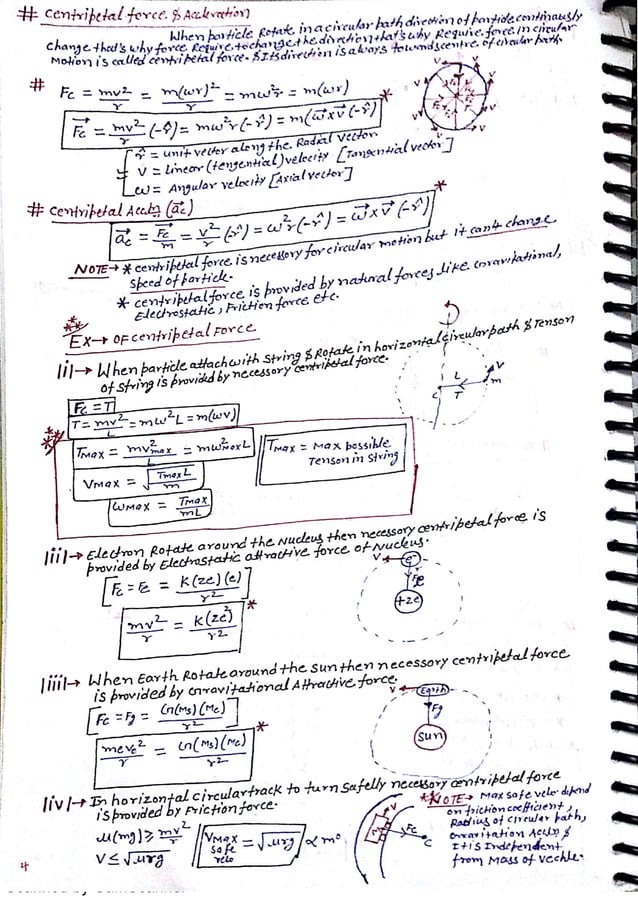 # Centripetal force & Accleration
When particle Rotate in a circular path direction of particle continously
change that's why force Require to change the direction that's why Require force in circular
Motion is called centripetal force. & Its direction is always towards centre of circular path.
# Fc = mv²/r = m(ωr)²/r = mω²r = m(ωr)
F⃗c = mv²/r (-r̂) = mω²r(-r̂) = m(ω⃗×v⃗)(-r̂) *
r̂ = unit vector along the Radial vector
V = Linear (tengential) velocity [Tangential vector]
ω = Angular velocity [Axial vector]
# Centripetal Accln (a⃗c)
a⃗c = F⃗c/m = v²/r (-r̂) = ω²r(-r̂) = ω⃗×v⃗(-r̂) *
NOTE → * centripetal force is necessary for circular motion but it can't change
speed of particle.
* centripetal force is provided by natural forces like Gravitational,
Electrostatic, Friction force etc.
Ex → OF Centripetal Force
|i| → When particle attach with string & Rotate in horizontal circular path & Tenson
of string is provided by necessary centripetal force.
Fc = T
T = mv²/L = mω²L = m(ωv)
TMax = mv²max/L = mω²Max L
TMax = Max possible
Tenson in string
VMax = √TMax L/m
ωMax = TMax/mL
L
T
C
V
m
|ii| → Electron Rotate around the Nucleus then necessary centripetal force is
provided by Electrostatic attractive force of Nucleus.
Fc = Fe = K(ze)(e)/r²
mv²/r = K(ze²)/r² *
V
e⁻
Fe
+ze
|iii| → When Earth Rotate around the sun then necessary centripetal force
is provided by Gravitational Attractive force.
Fc = Fg = G(Ms)(Me)/r²
meve²/r = G(Ms)(Me)/r² *
V
Earth
Fg
sun
|iv| → In horizontal circular track to turn safelly necessary centripetal force
is provided by Friction force.
μ(mg) ≥ mv²/r
V ≤ √μrg
VMax safe velo = √μrg ∝ m⁰
V
M
Fc
C
*NOTE → Max safe velo depend
on friction coefficient,
Radius of circular path,
Gravitation Accln &
It is Independent
from Mass of vechle.
4